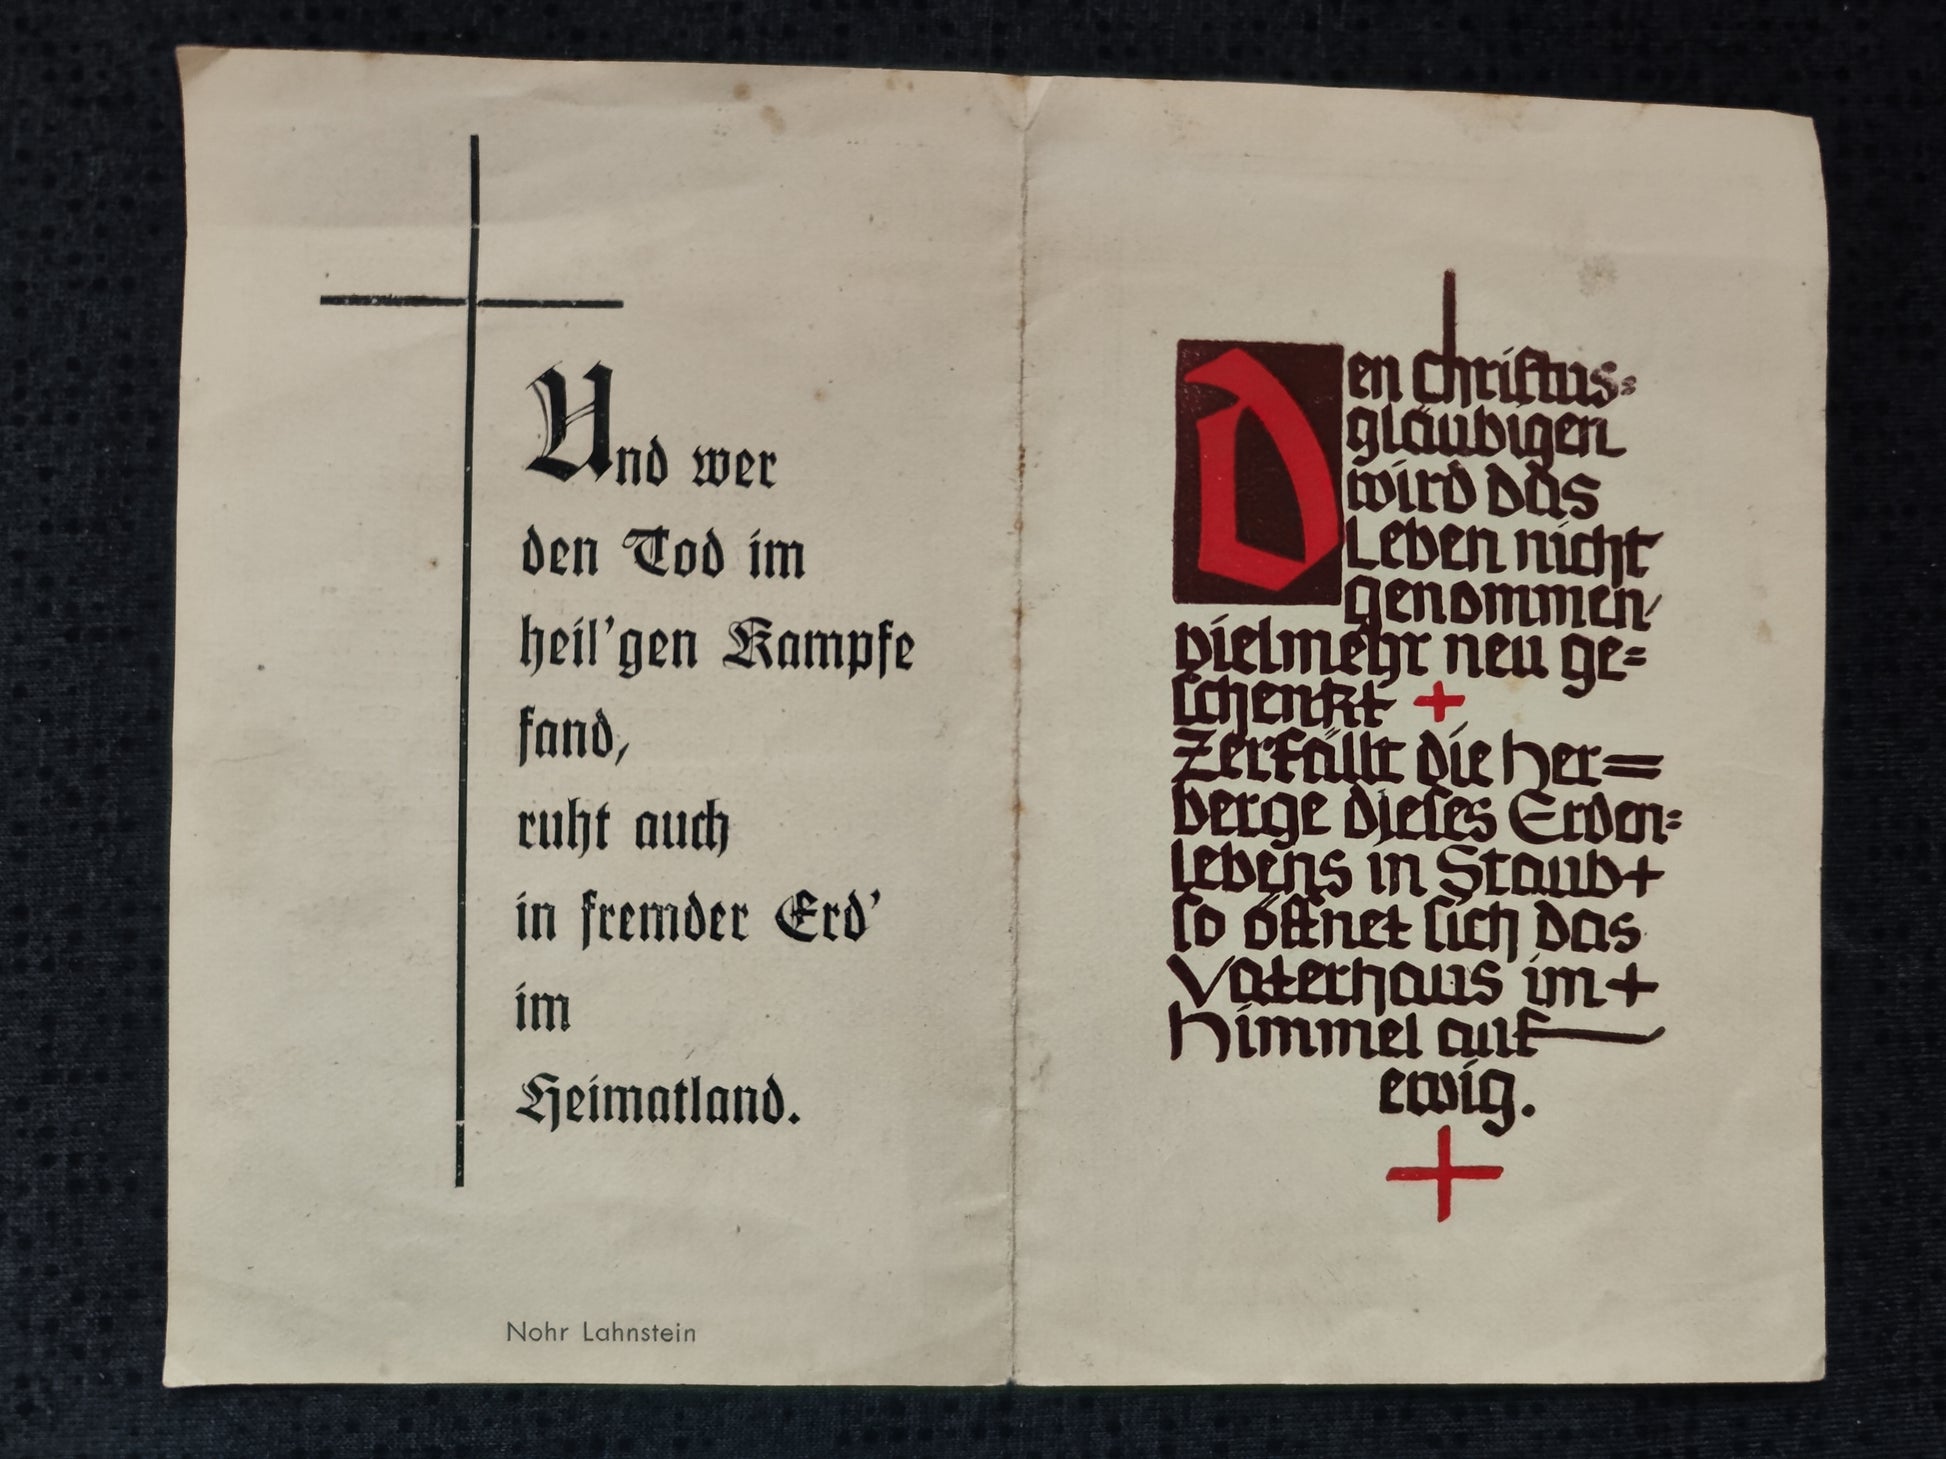 Und wer
den Tod im
heil'gen Kampfe
fand,
ruht auch
in fremder Erd'
im
Heimatland.
Nohr Lahnstein
Den Christus=
gläubigen
wird das
Leben nicht
genommen,
vielmehr neu ge=
schenkt +
Zerfällt die Her=
berge dieses Erden=
lebens in Staub+
so öffnet sich das
Vaterhaus im+
Himmel auf
ewig.